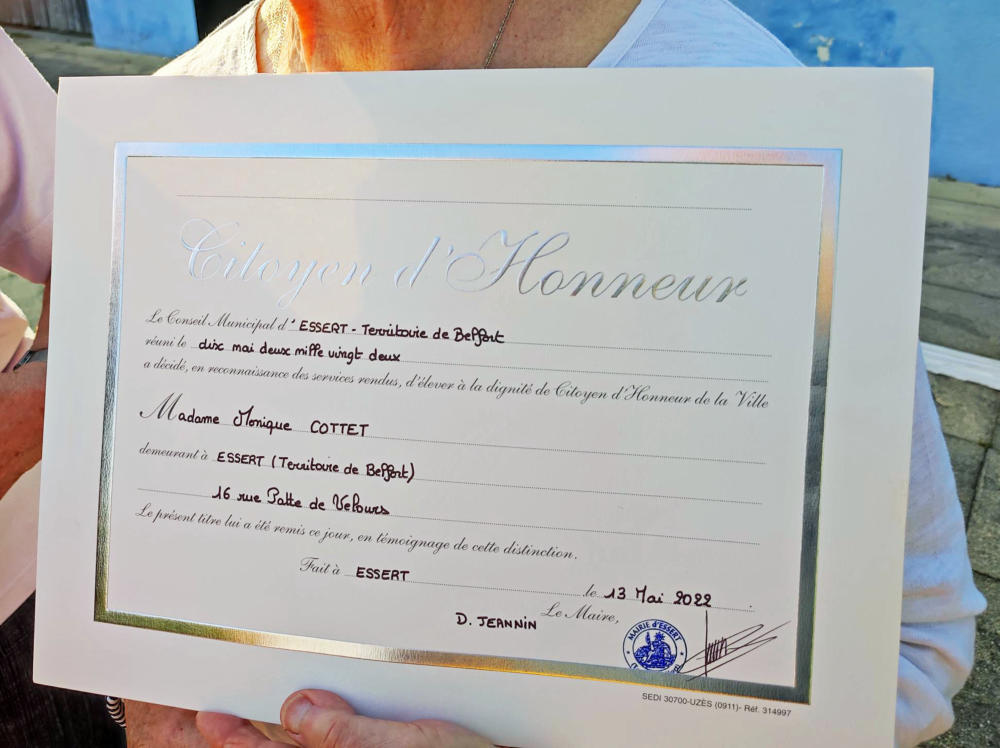 Citoyen d'Honneur
Le Conseil Municipal d'ESSERT - Territoire de Belfort
réuni le dix mai deux mille vingt deux
a décidé, en reconnaissance des services rendus, d'élever à la dignité de Citoyen d'Honneur de la Ville
Madame Monique COTTET
demeurant à ESSERT (Territoire de Belfort)
16 rue Patte de Velours
Le présent titre lui a été remis ce jour, en témoignage de cette distinction.
Fait à ESSERT
le 13 Mai 2022
Le Maire,
D. JEANNIN
MAIRIE d'ESSERT
SEDI 30700-UZÈS (0911)- Réf. 314997